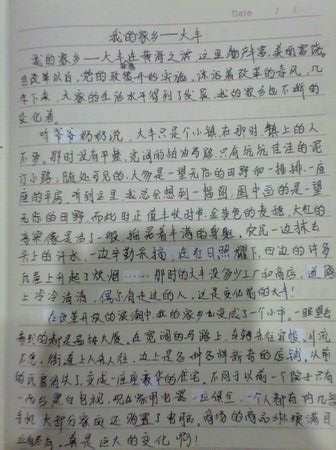 Date / /
我的家乡——大丰
我的家乡——大丰在黄海之滨,这里物产丰富,美丽富饶。
自改革以后,党的政策开始实施,沐浴着改革的春风,几
年下来,大家的生活水平得到了发展,我的家乡也不断的
变化着。
听爷爷奶奶说,大丰只是个小镇在那时镇上的人
不多。那时没有平整、宽阔的柏油马路,只有坑坑洼洼的泥
订小路,随处可见的,大多是一望无际的田野和一排排、一座
座的平房。听到这里,我总会想到一幅图,图中画的是一望
无际的田野,而此时正值丰收时节,金黄色的麦穗,大红的
高粱像是活了一般,摇晃着丰满的身躯,农民一边抹去
头上的汗水,一边辛勤采摘,在红日照耀下,四边的许多
瓦屋上升起了炊烟……那时的大丰没多少工厂和商店,道路
上冷冷清清,偶尔有走过的人,这是变化前的大丰!
在改革开放的浪潮中我的家乡也变成了一个小市,一眼望去
看到的都是高楼大厦。在宽阔的马路上,车辆来往穿梭,川流
不息,街道上人来人往,边上是各种各样新奇的店铺,从前
的民房消失了,变成一座座豪华的住宅。不同于以前一个院子只有
一两台黑白电视,现在家用电器一应俱全,一个人都有好几台
手机,大部分家庭还购置了电脑,商场的商品琳琅满目
应有尽有,真是巨大的变化啊!